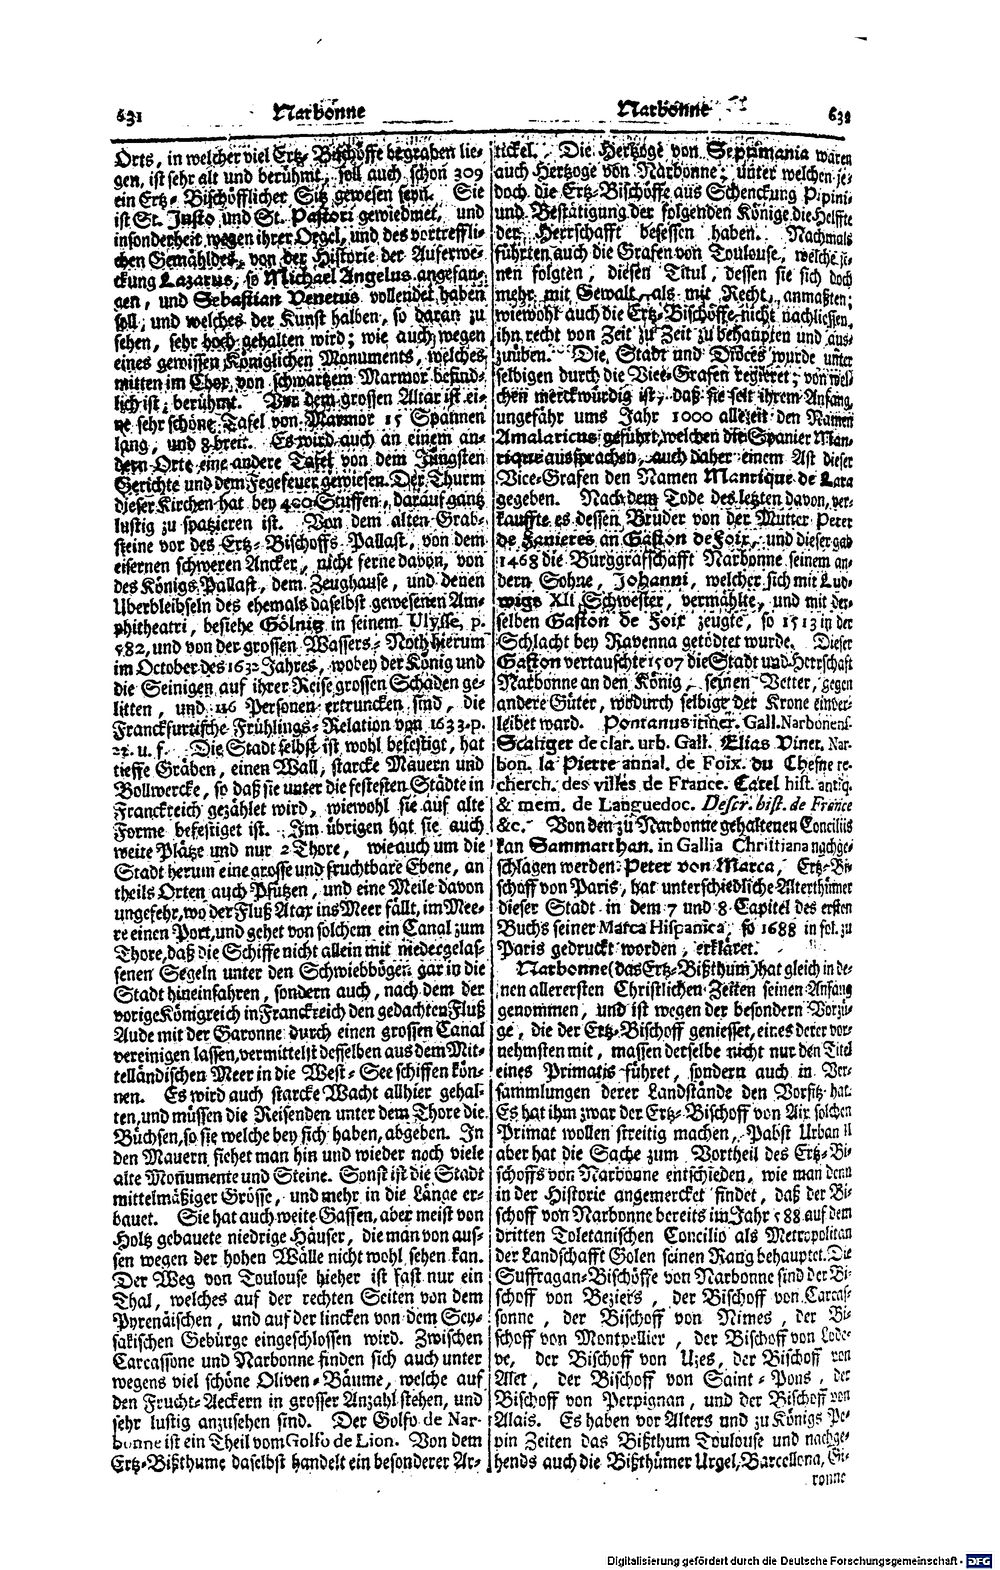 631
Narbonne
Orts, in welcher viel Ertz-Bischöffe begraben lie-
gen, ist sehr alt und berühmt, soll auch schon 309
ein Ertz-Bischöfflicher Sitz gewesen seyn. Sie
ist St. Justo und St. Pastori gewiedmet, und
insonderheit wegen ihrer Orgel, und des vortreffli-
chen Gemähldes, von der Historie der Auferwe-
ckung Lazarus, so Michael Angelus angefan-
gen, und Sebastian Venetus vollendet haben
soll, und welches der Kunst halben, so daran zu
sehen, sehr hoch gehalten wird; wie auch wegen
eines gewissen Königlichen Monuments, welches
mitten im Chor von schwartzem Marmor befind-
lich ist, berühmt. Vor dem grossen Altar ist ei-
ne sehr schöne Tafel von Marmor 15 Spannen
lang, und 8 breit. Es wird auch an einem an-
dern Orte eine andere Tafel von dem Jüngsten
Gerichte und dem Fegefeuer gewiesen. Der Thurm
dieser Kirchen hat bey 400 Stuffen, darauf gantz
lustig zu spatzieren ist. Von dem alten Grab-
steine vor des Ertz-Bischoffs Pallast, von dem
eisernen schweren Ancker, nicht ferne davon, von
des Königs Pallast, dem Zeughause, und denen
Uberbleibseln des ehemals daselbst gewesenen Am-
phitheatri, besiehe Gölnitz in seinem Ulysse, p.
582, und von der grossen Wassers-Noth hierum
im October des 1632 Jahres, wobey der König und
die Seinigen auf ihrer Reise grossen Schaden ge-
litten, und 116 Personen ertruncken sind, die
Franckfurtische Frühlings-Relation von 1633. p.
u. f. Die Stadt selbst ist wohl befestigt, hat
tieffe Gräben, einen Wall, starcke Mauern und
Bollwercke, so daß sie unter die festesten Städte in
Franckreich gezählet wird, wiewohl sie auf alte
Forme befestiget ist. Im übrigen hat sie auch
weite Plätze und nur 2 Thore, wie auch um die
Stadt herum eine grosse und fruchtbare Ebene, an
theils Orten auch Pfützen, und eine Meile davon
ungefehr, wo der Fluß Atax ins Meer fällt, im Mee-
re einen Port, und gehet von solchem ein Canal zum
Thore, daß die Schiffe nicht allein mit niedergelas-
senen Segeln unter den Schwiebbögen gar in die
Stadt hineinfahren, sondern auch, nach dem der
vorige König reich in Franckreich den gedachten Fluß
Aude mit der Garonne durch einen grossen Canal
vereinigen lassen, vermittelst desselben aus dem Mit-
telländischen Meer in die West-See schiffen kön-
nen. Es wird auch starcke Wacht allhier gehal-
ten, und müssen die Reisenden unter dem Thore die
Büchsen, so sie welche bey sich haben, abgeben. In
den Mauern siehet man hin und wieder noch viele
alte Monumente und Steine. Sonst ist die Stadt
mittelmäßiger Grösse, und mehr in die Länge er-
bauet. Sie hat auch weite Gassen, aber meist von
Holtz gebauete niedrige Häuser, die man von aus-
sen wegen der hohen Wälle nicht wohl sehen kan.
Der Weg von Toulouse hieher ist fast nur ein
Thal, welches auf der rechten Seiten von dem
Pyrenäischen, und auf der lincken von dem Sey-
sakischen Gebürge eingeschlossen wird. Zwischen
Carcassone und Narbonne finden sich auch unter
wegens viel schöne Oliven-Bäume, welche auf
den Frucht-Aeckern in grosser Anzahl stehen, und
sehr lustig anzusehen sind. Der Golfo de Nar-
bonne ist ein Theil vom Golfo de Lion. Von dem
Ertz-Bißthume daselbst handelt ein besonderer Ar-
Narbonne
632
tickel. Die Hertzoge von Septimania waren
auch Hertzoge von Narbonne; unter welchen je-
doch die Ertz-Bischöffe aus Schenckung Pipini
und Bestätigung der folgenden Könige die Helffte
der Herrschafft besessen haben. Nachmals
führten auch die Grafen von Toulouse, welche je-
nen folgten, diesen Titul, dessen sie sich doch
mehr mit Gewalt, als mit Recht, anmaßten;
wiewohl auch die Ertz-Bischöffe nicht nachliessen,
ihn recht von Zeit zu Zeit zu behaupten und aus-
zuüben. Die Stadt und Diöces wurde unter
selbigen durch die Vice-Grafen regieret; von wel-
chen merckwürdig ist, daß sie seit ihrem Anfang,
ungefähr ums Jahr 1000 allezeit den Namen
Amalaricus geführt, welchen die Spanier Man-
rique aussprachen, auch daher einem Ast dieser
Vice-Grafen den Namen Manrique de Lara
gegeben. Nach dem Tode des letzten davon, ver-
kauffte es dessen Bruder von der Mutter Peter
de Lanieres an Gaston de Foix, und dieser gab
1468 die Burggrafschafft Narbonne seinem an-
dern Sohne, Johanni, welcher sich mit Lud-
wigs XII Schwester, vermählte, und mit der-
selben Gaston de Foix zeugte, so 1513 in der
Schlacht bey Ravenna getödtet wurde. Dieser
Gaston vertauschte 1507 die Stadt und Herrschaft
Narbonne an den König, seinen Vetter, gegen
andere Güter, wodurch selbige der Krone einver-
leibet ward. Pontanus itiner. Gall. Narbonens.
Scaliger de clar. urb. Gall. Elias Viner. Nar-
bon. la Pierre annal. de Foix. du Chesne re-
cherch. des villes de France. Catel hist. antiq.
& mem. de Languedoc. Descr. hist. de France
&c. Von den zu Narbonne gehaltenen Conciliis
kan Sammarthan. in Gallia Christiana nachge-
schlagen werden. Peter von Marca, Ertz-Bi-
schoff von Paris, hat unterschiedliche Alterthümer
dieser Stadt in dem 7 und 8 Capitel des ersten
Buchs seiner Marca Hispanica, so 1688 in fol. zu
Paris gedruckt worden, erkläret.
Narbonne (das Ertz-Bißthum) hat gleich in de-
nen allerersten Christlichen Zeiten seinen Anfang
genommen, und ist wegen der besondern Vorzü-
ge, die der Ertz-Bischoff geniesset, eines derer vor-
nehmsten mit, massen derselbe nicht nur den Titel
eines Primatis führet, sondern auch in Ver-
sammlungen derer Landstände den Vorsitz hat.
Es hat ihm zwar der Ertz-Bischoff von Aix solchen
Primat wollen streitig machen, Pabst Urban II
aber hat die Sache zum Vortheil des Ertz-Bi-
schoffs von Narbonne entschieden, wie man denn
in der Historie angemercket findet, daß der Bi-
schoff von Narbonne bereits im Jahr 588 auf dem
dritten Toletanischen Concilio als Metropolitan
der Landschafft Golen seinen Rang behauptet. Die
Suffragan-Bischöffe von Narbonne sind der Bi-
schoff von Beziers, der Bischoff von Carcas-
sonne, der Bischoff von Nimes, der Bi-
schoff von Montpellier, der Bischoff von Lode-
ve, der Bischoff von Uzes, der Bischoff von
Alet, der Bischoff von Saint-Pons, der
Bischoff von Perpignan, und der Bischoff von
Alais. Es haben vor Alters und zu Königs Pe-
pin Zeiten das Bißthum Toulouse und nachge-
hends auch die Bißthümer Urgel, Barcellona, Gi-
ronne
Digitalisierung gefördert durch die Deutsche Forschungsgemeinschaft - DFG